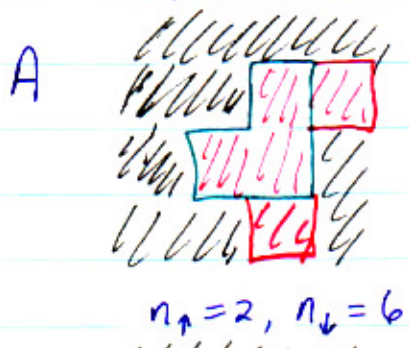 A
n↑ = 2, n↓ = 6